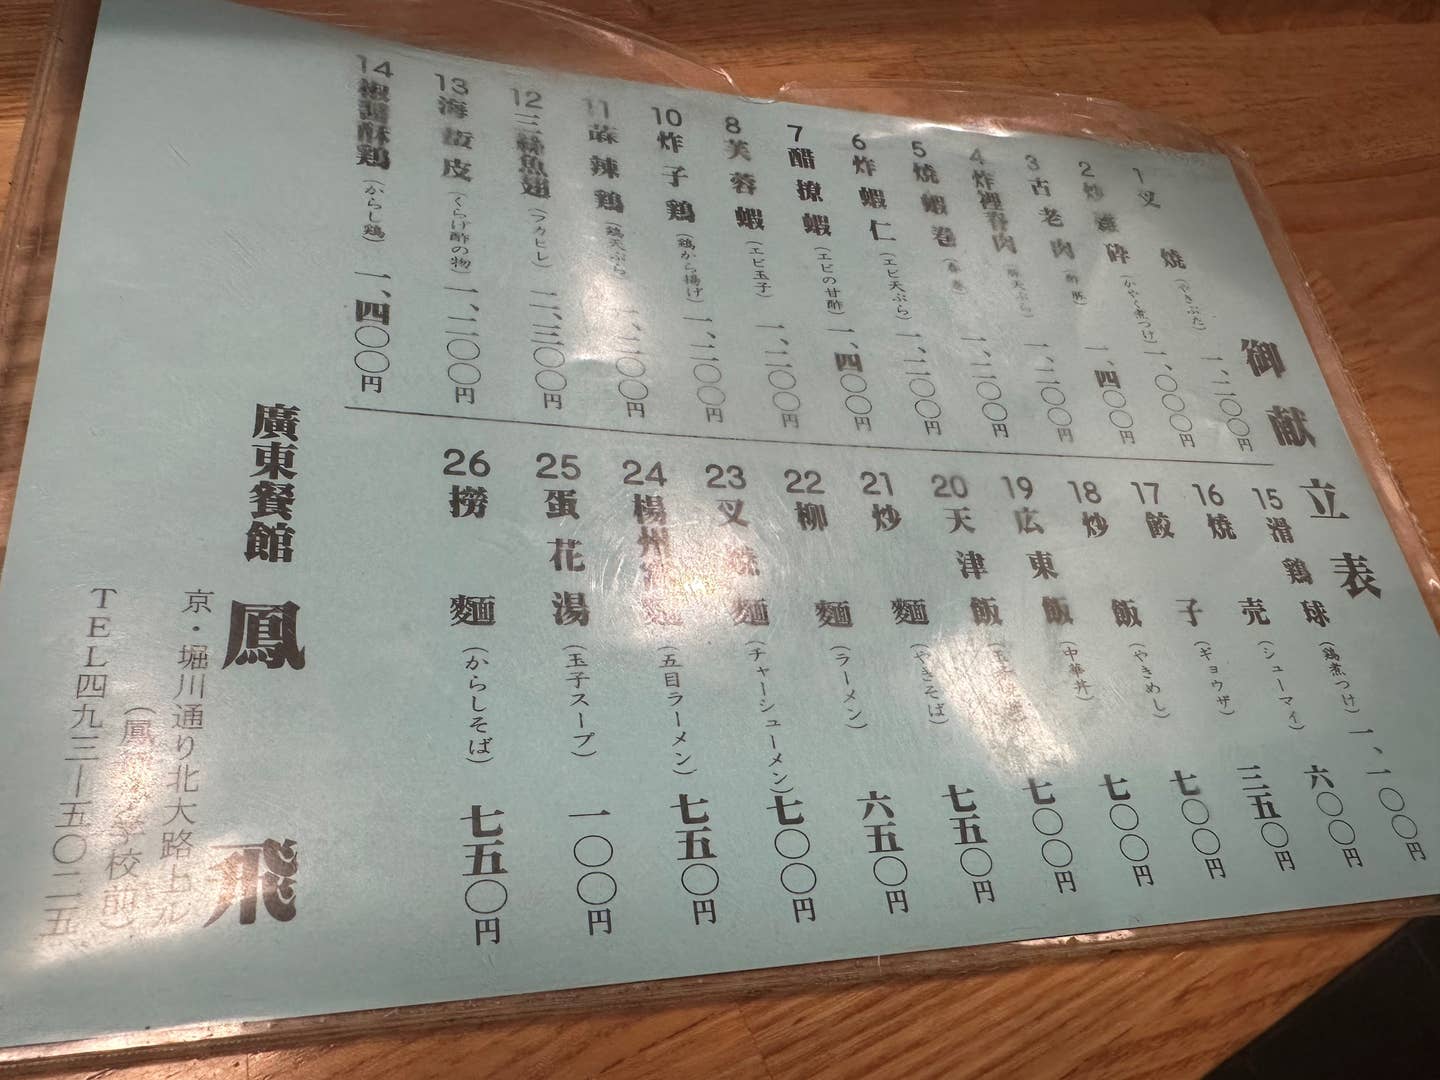 御献立表
1 叉焼 (やきぶた) 一、二〇〇円
2 炒雑砕 (かやく煮つけ) 一、〇〇〇円
3 古老肉 (酢豚) 一、四〇〇円
4 炸裡脊肉 (豚天ぷら) 一、二〇〇円
5 焼蝦巻 (春巻) 一、二〇〇円
6 炸蝦仁 (エビ天ぷら) 一、二〇〇円
7 醋撩蝦 (エビの甘酢) 一、四〇〇円
8 芙蓉蝦 (エビ玉子) 一、二〇〇円
10 炸子鶏 (鶏から揚げ) 一、二〇〇円
11 辣鶏 (鶏天ぷら) 一、二〇〇円
12 三絲魚翅 (フカヒレ) 二、三〇〇円
13 海蜇皮 (くらげ酢の物) 一、二〇〇円
14 椒醤酥鶏 (からし鶏) 一、四〇〇円
15 滑鶏球 (鶏煮つけ) 一、一〇〇円
16 焼売 (シューマイ) 六〇〇円
17 餃子 (ギョウザ) 三五〇円
18 炒飯 (やきめし) 七〇〇円
19 広東飯 (中華丼) 七〇〇円
20 天津飯 七〇〇円
21 炒麵 (やきそば) 七五〇円
22 柳麵 (ラーメン) 六五〇円
23 叉焼麵 (チャーシューメン) 七〇〇円
24 楊州麵 (五目ラーメン) 七五〇円
25 蛋花湯 (玉子スープ) 一〇〇円
26 撈麵 (からしそば) 七五〇円
廣東餐館 鳳飛
京・堀川通り北大路上ル
(鳳 学校前)
TEL四九三―五〇二五